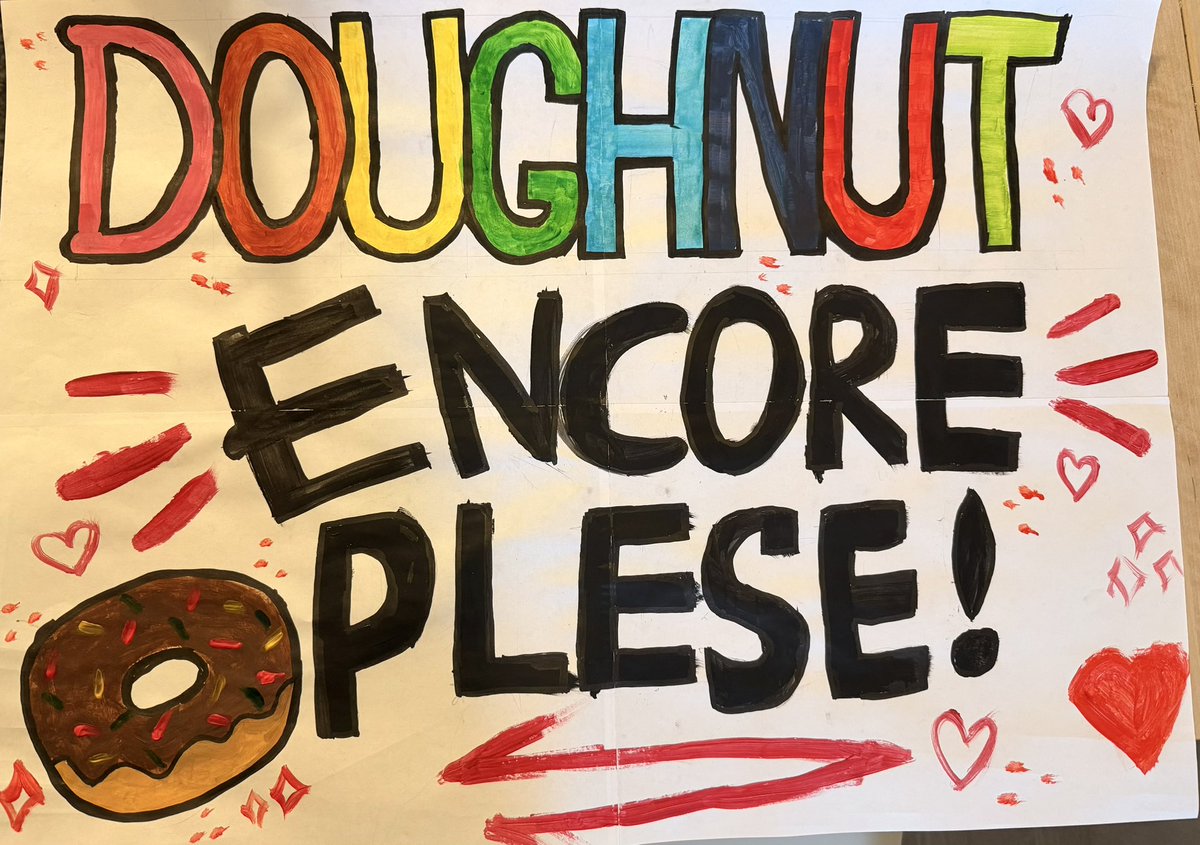 DOUGHNUT
ENCORE
PLESE!